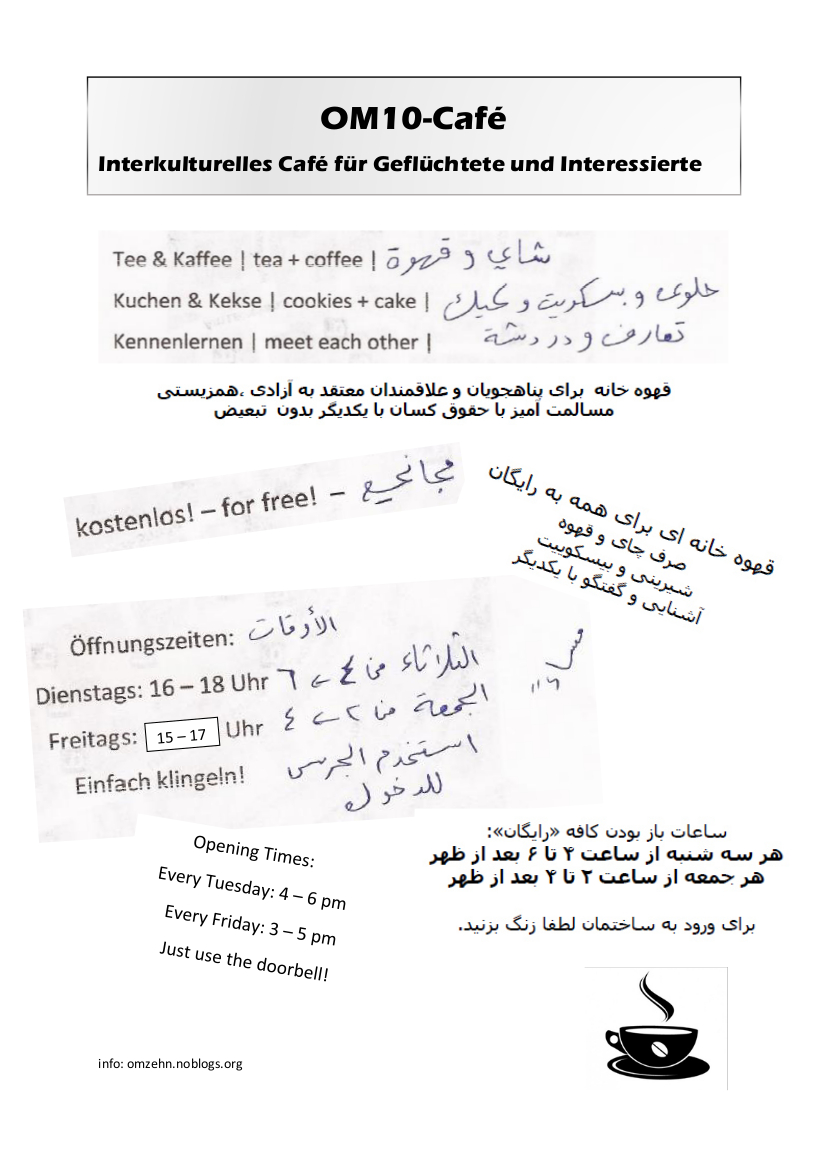 OM10-Café
Interkulturelles Café für Geflüchtete und Interessierte
Tee & Kaffee | tea + coffee | شاي و قهوة
Kuchen & Kekse | cookies + cake | حلوى و بسكويت و كيك
Kennenlernen | meet each other | تعارف و دردشة
قهوه خانه برای پناهجویان و علاقمندان معتقد به آزادی ،همزیستی
مسالمت آمیز با حقوق کسان با یکدیگر بدون تبعیض
kostenlos! – for free! –
قهوه خانه ای برای همه به رایگان
صرف چای و قهوه
شیرینی و بیسکوییت
آشنایی و گفتگو با یکدیگر
Öffnungszeiten: الأوقات
Dienstags: 16 – 18 Uhr الثلاثاء من ٤ ← ٦
Freitags: 15 – 17 Uhr الجمعة من ٢ ← ٤
Einfach klingeln! استخدم الجرس
للدخول
Opening Times:
Every Tuesday: 4 – 6 pm
Every Friday: 3 – 5 pm
Just use the doorbell!
ساعات باز بودن کافه «رایگان»:
هر سه شنبه از ساعت ۴ تا ۶ بعد از ظهر
هر جمعه از ساعت ۲ تا ۴ بعد از ظهر
برای ورود به ساختمان لطفا زنگ بزنید.
info: omzehn.noblogs.org